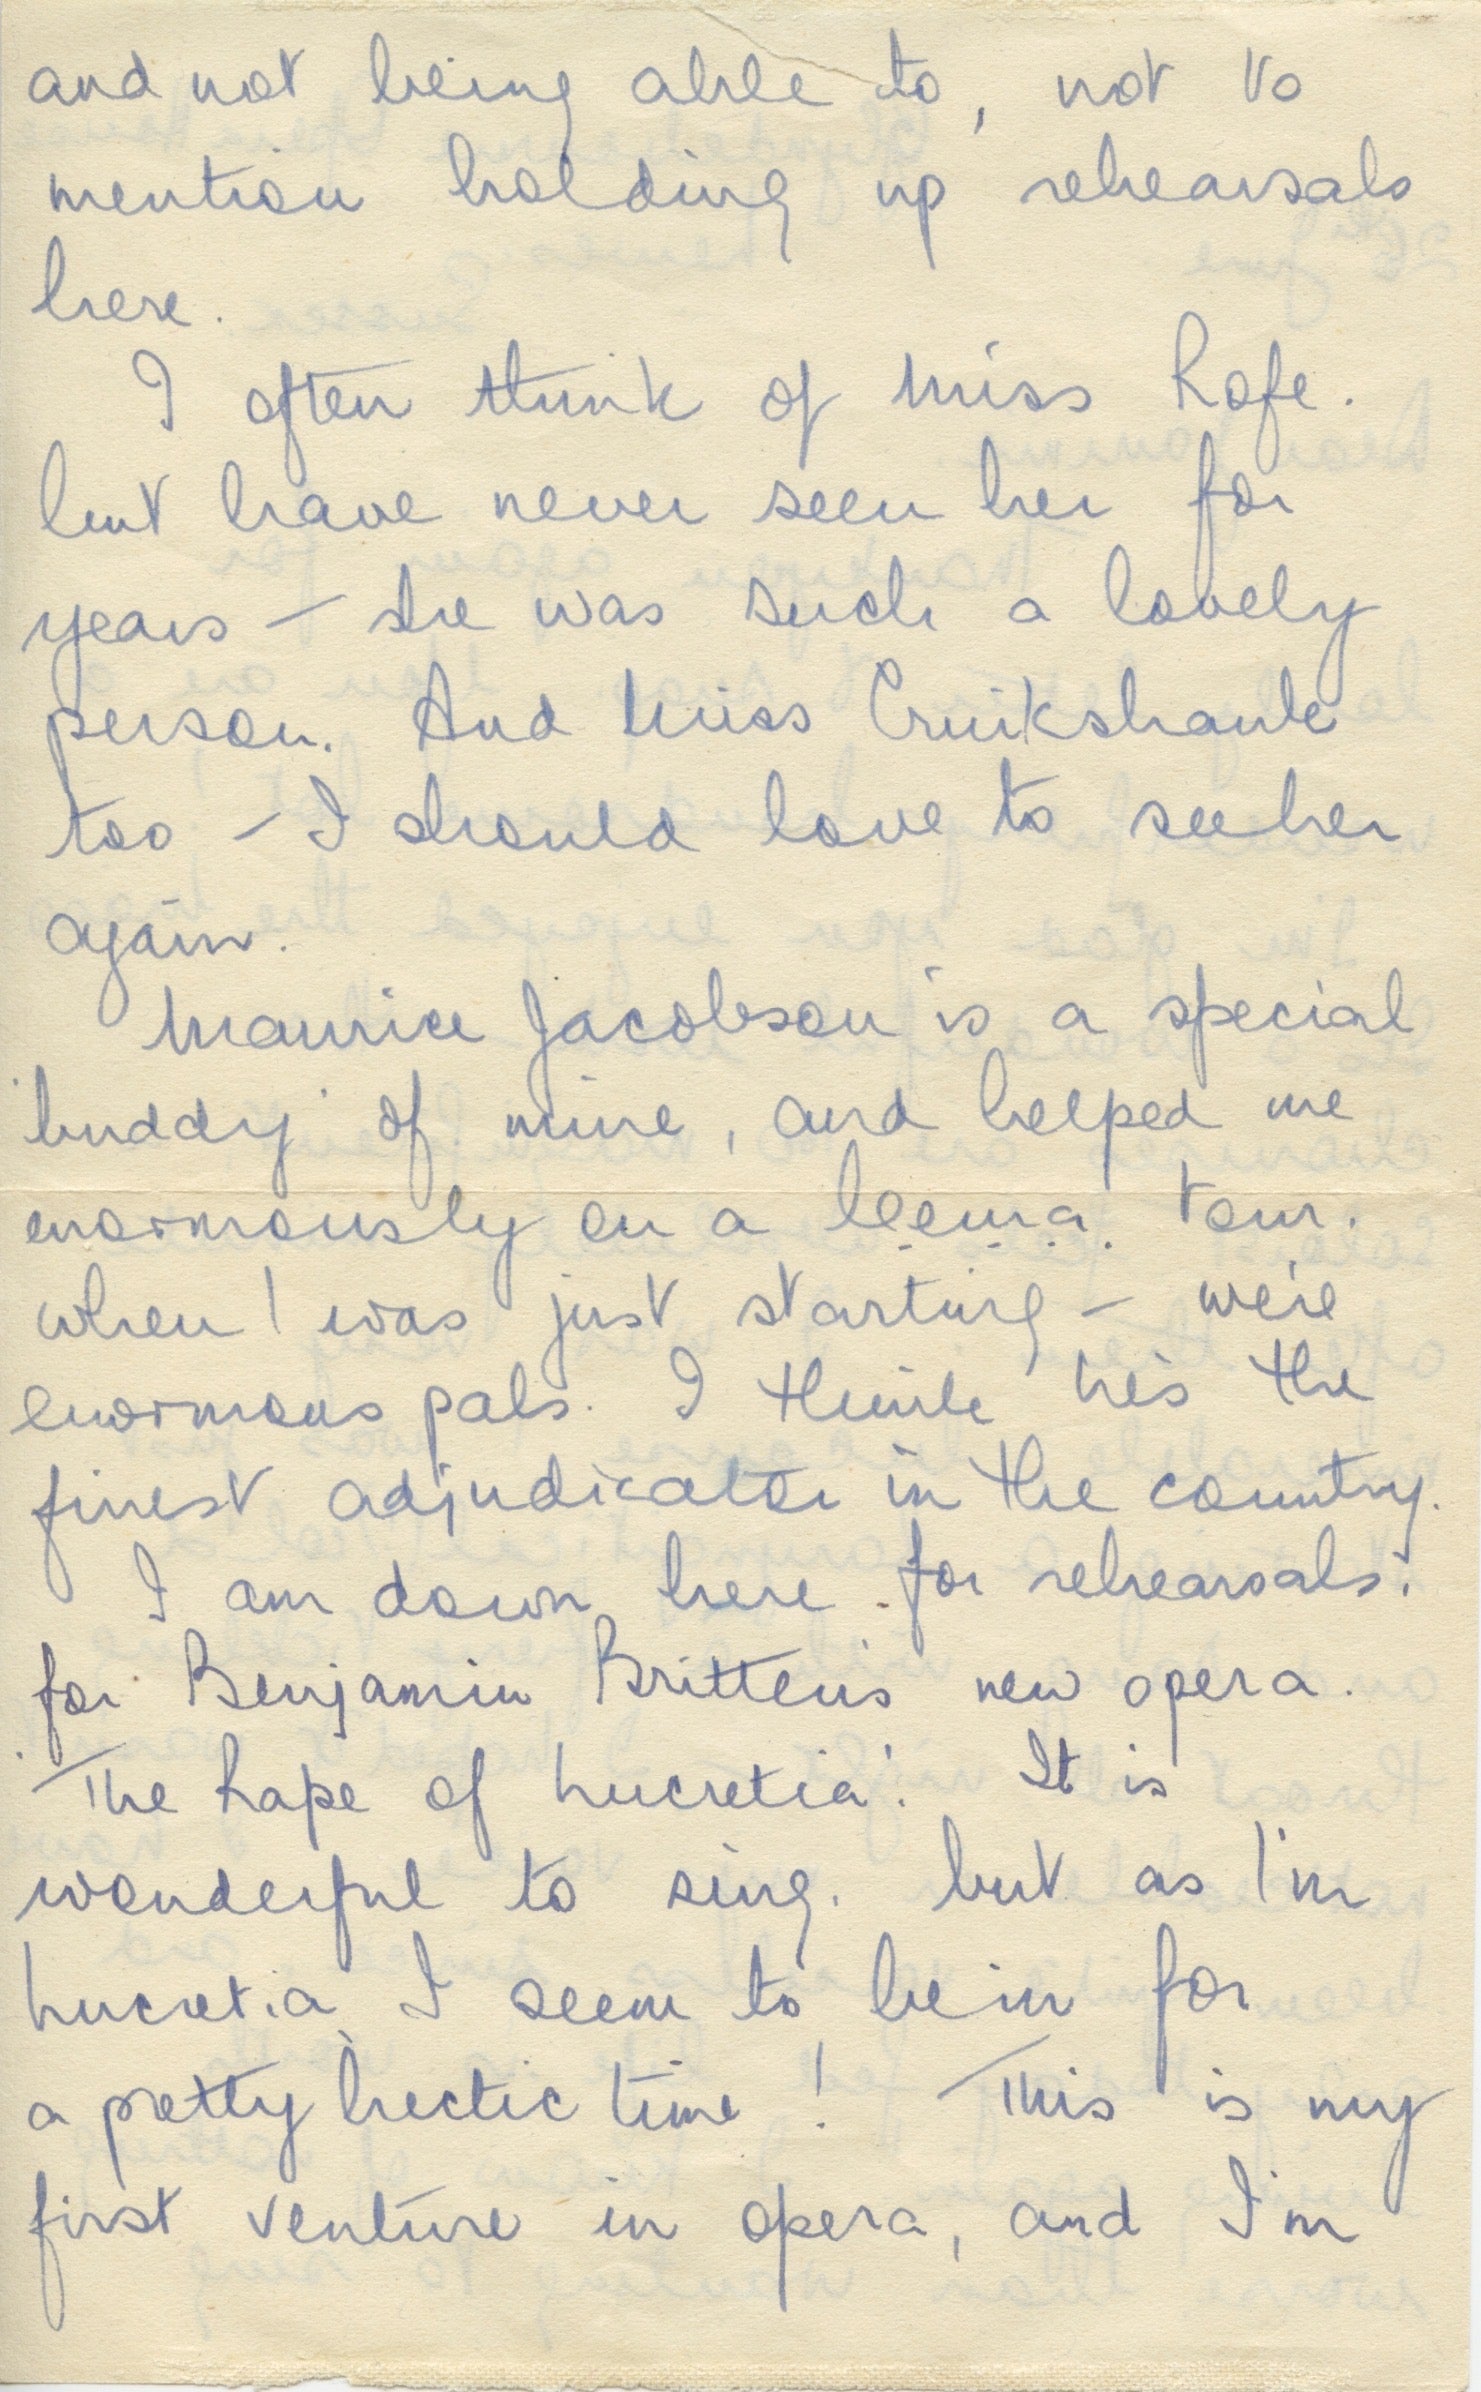 and not being able to, not to
mention holding up rehearsals
here.
I often think of Miss Rofe.
but have never seen her for
years – she was such a lovely
person. And Miss Cruikshank
too – I should love to see her
again.
Maurice Jacobson is a special
'buddy' of mine, and helped me
enormously on a C.E.M.A. tour.
when I was just starting – we're
enormous pals. I think he's the
finest adjudicator in the country.
I am down here for rehearsals.
for Benjamin Britten's new opera.
'The Rape of Lucretia'. It is
wonderful to sing. but as I'm
Lucretia, I seem to be in for
a pretty hectic time! This is my
first venture in opera, and I'm